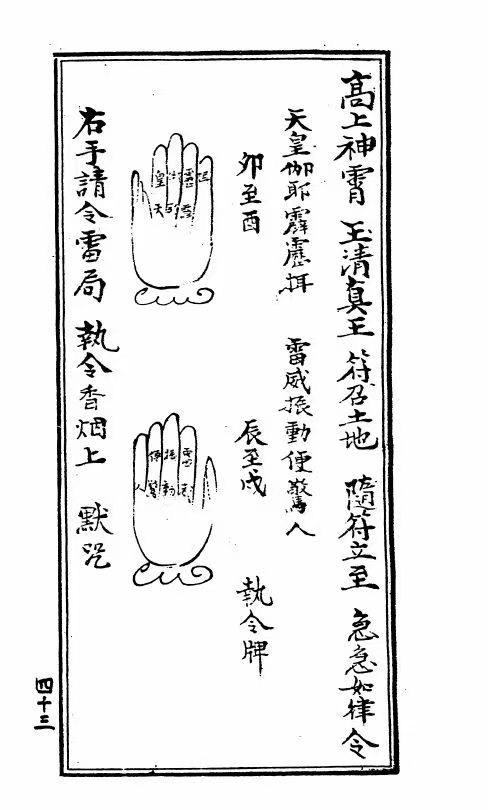 高上神霄 玉清真王 符召土地 隨符立至 急急如律令
天皇伽耶霹靂揖 雷威振動便驚人
卯至酉
辰至戌
執令牌
右手請令雷局 執令香烟上 默咒
四十三